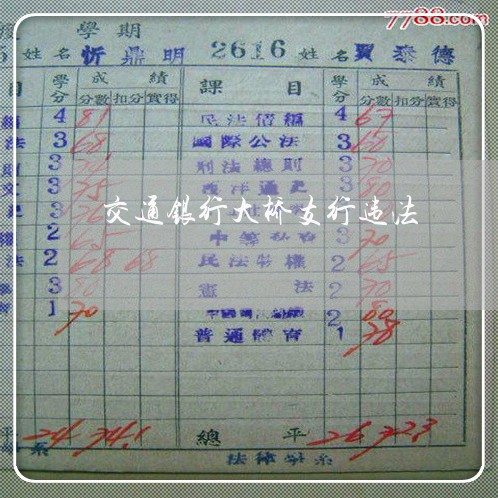 7788.com
學期
姓名 忻鼎明 2616 姓名 賈泰德
目 學分 成績 課目 學分 成績
分數 扣分 實得 分數 扣分 實得
4 81 民法債編 4 67
法 3 68 國際公法 3 60
3 刑法總則 3 70
3 75 西洋通史 3 80
交通銀行大桥支行违法
2 65 3 70
法 2 68 68 民法物權 2 65
3 80 憲法 2 70
1 70 2 80
普通體育 1 78
平 24 74.1 總平 26 72.3
系 法律學系